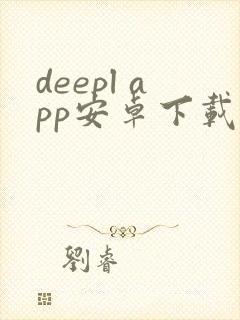 deepl a
pp安卓下载
劉睿